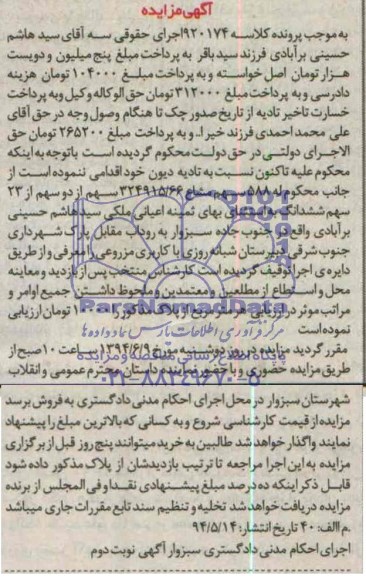 آگهی مزایده
به موجب پرونده کلاسه ۹۲۰۱۷۴اجرای حقوقی سه آقای سید هاشم
حسینی برآبادی فرزند سید باقر به پرداخت مبلغ پنج میلیون و دویست
هزار تومان اصل خواسته و به پرداخت مبلغ ۱۰۴۰۰۰ تومان هزینه
دادرسی و به پرداخت مبلغ ۳۱۲۰۰۰ تومان حق الوکاله وکیل وبه پرداخت
خسارت تاخیر تادیه از تاریخ صدور چک تا هنگام وصول وجه در حق آقای
علی محمد احمدی فرزند خیرا.. و به پرداخت مبلغ ۲۶۵۲۰۰ تومان حق
الاجرای دولتی در حق دولت محکوم گردیده است باتوجه به اینکه
محکوم علیه تاکنون نسبت به تادیه دیون خود اقدامی ننموده است از
جانب محکوم له ۵۸۸ سهم مشاع ۳۲۴۹۱۵/۶۶ سهم از دو سهم از ۲۳
سهم ششدانگ به استثنای بهای ثمینه اعیانی ملکی سید هاشم حسینی
برآبادی واقع در جنوب جاده سبزوار به روداب مقابل پارک شهرداری
جنوب شرقی دبیرستان شبانه روزی با کاربری مزروعی را معرفی و از طریق
دایره ی اجرا توقیف گردیده است کارشناس منتخب پس از بازدید و معاینه
محل و استطلاع از مطلعین و معتمدین و ملحوظ داشتن جمیع اوامر و
مراتب موثر در ارزیابی هر متر مربع از پلاک مذکور را تومان ارزیابی
نموده است
مقرر گردید مزایده در روز دوشنبه مورخ ۱۳۹۴/۶/۹ ساعت ۱۰ صبح از
طریق مزایده حضوری و با حضور نماینده دادستان محترم عمومی و انقلاب
شهرستان سبزوار در محل اجرای احکام مدنی دادگستری به فروش برسد
مزایده از قیمت کارشناسی شروع و به کسانی که بالاترین مبلغ را پیشنهاد
نمایند واگذار خواهد شد طالبین به خرید میتوانند پنج روز قبل از برگزاری
مزایده به این اجرا مراجعه تا ترتیب بازدیدشان از پلاک مذکور داده شود
قابل ذکر اینکه ده درصد مبلغ پیشنهادی نقدا و فی المجلس از برنده
مزایده دریافت خواهد شد تخلیه و تنظیم سند تابع مقررات جاری میباشد
.م االف: ۴۰ تاریخ انتشار: ۹۴/۵/۱۴
اجرای احکام مدنی دادگستری سبزوار آگهی نوبت دوم
ParsNamadData
مرکز فرآوری اطلاعات پارس نماد داده ها
پایگاه اطلاع رسانی مناقصه و مزایده
۰۲۱-۸۸۳۴۹۶۷۰-۵